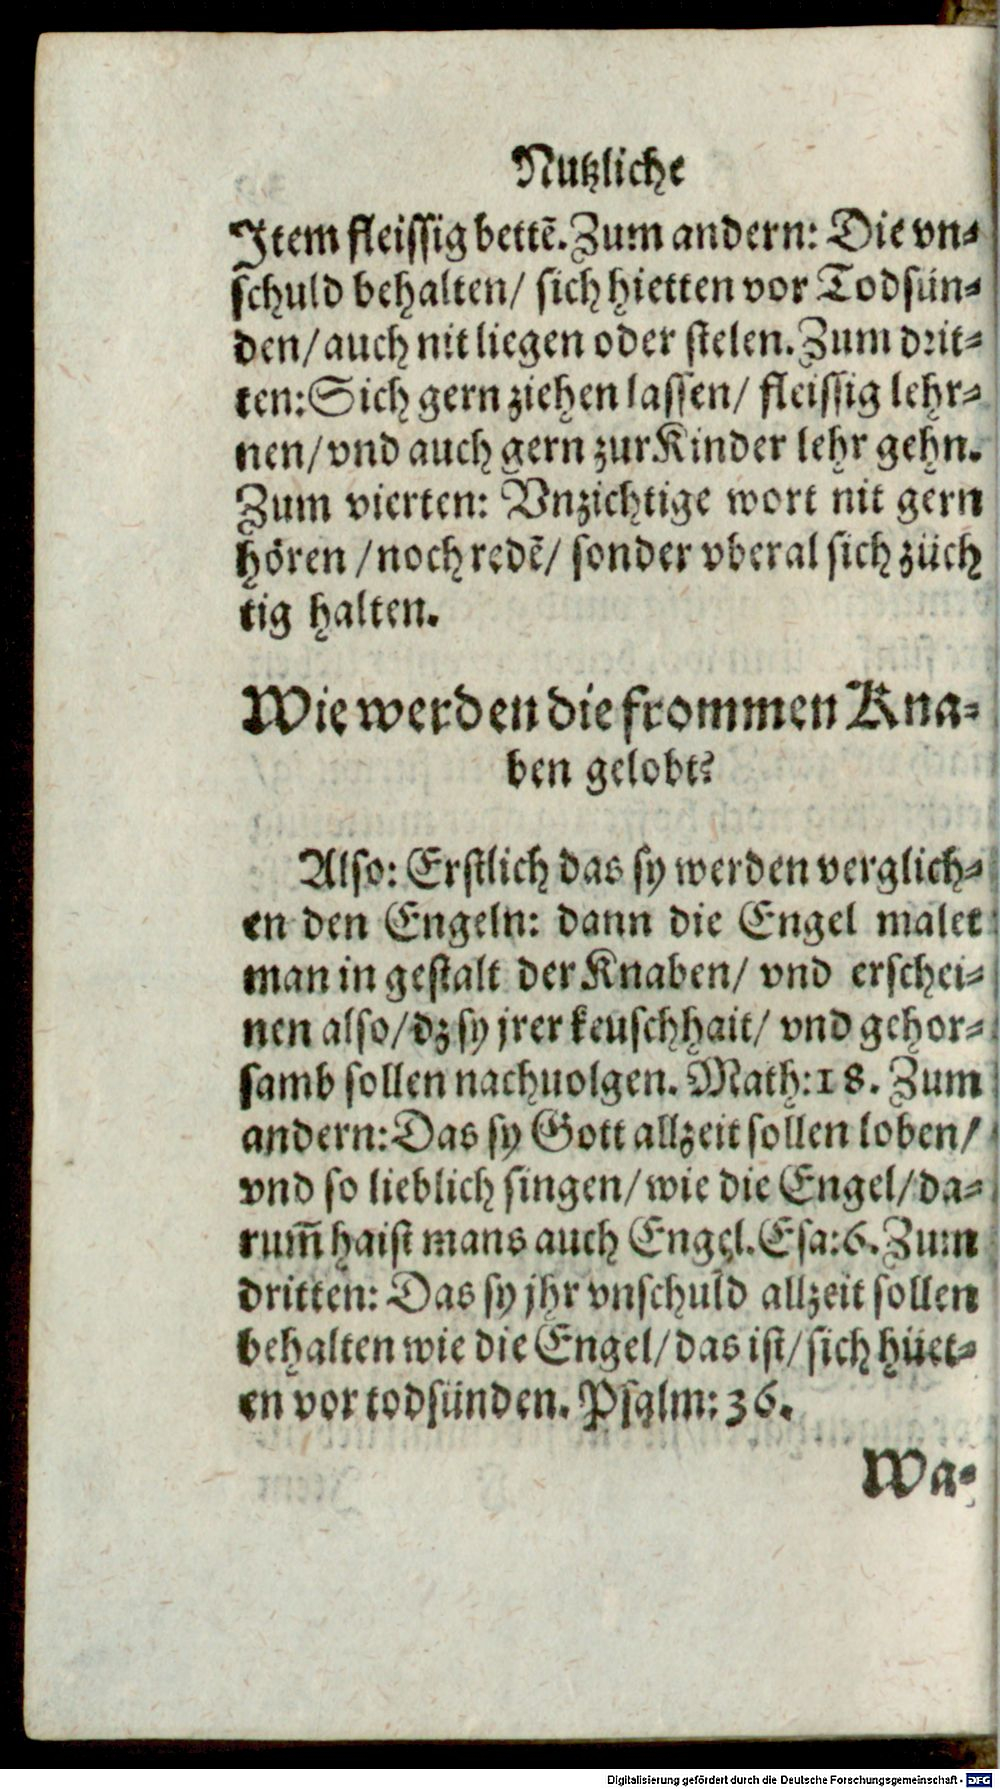 Nutzliche
Item fleissig bettē. Zum andern: Die vn-
schuld behalten/ sich hietten vor Todsün-
den/ auch nit liegen oder stelen. Zum drit-
ten: Sich gern ziehen lassen/ fleissig lehr-
nen/ vnd auch gern zur Kinder lehr gehn.
Zum vierten: Vnzichtige wort nit gern
hören / noch redē/ sonder vberal sich züch
tig halten.
Wie werden die frommen Kna-
ben gelobt?
Also: Erstlich das sy werden verglich-
en den Engeln: dann die Engel malet
man in gestalt der Knaben/ vnd erschei-
nen also/ dz sy jrer keuschhait/ vnd gehor-
samb sollen nachuolgen. Math: 18. Zum
andern: Das sy Gott allzeit sollen loben/
vnd so lieblich singen/ wie die Engel/ da-
rum̄ haist mans auch Engel. Esa: 6. Zum
dritten: Das sy jhr vnschuld allzeit sollen
behalten wie die Engel/ das ist/ sich hüet-
en vor todsünden. Psalm: 36.
Wa-
Digitalisierung gefördert durch die Deutsche Forschungsgemeinschaft - DFG